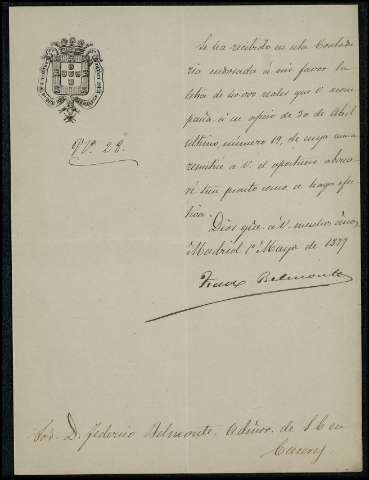 Nº. 28.
Se ha recibido en esta Contadu
ria endosada á mi favor la
letra de 40.000 reales que acom
paña á su oficio de 30 de Abril
último número 19, de cuya suma
remitiré á V. el oportuno abona
ré tan pronto como se haga efec
tiva.
Dios gde. á V. muchos años,
Madrid 1º Mayo de 1879
Belmonte
Sor. D. Federico Belmonte. Admor. de S. E. en